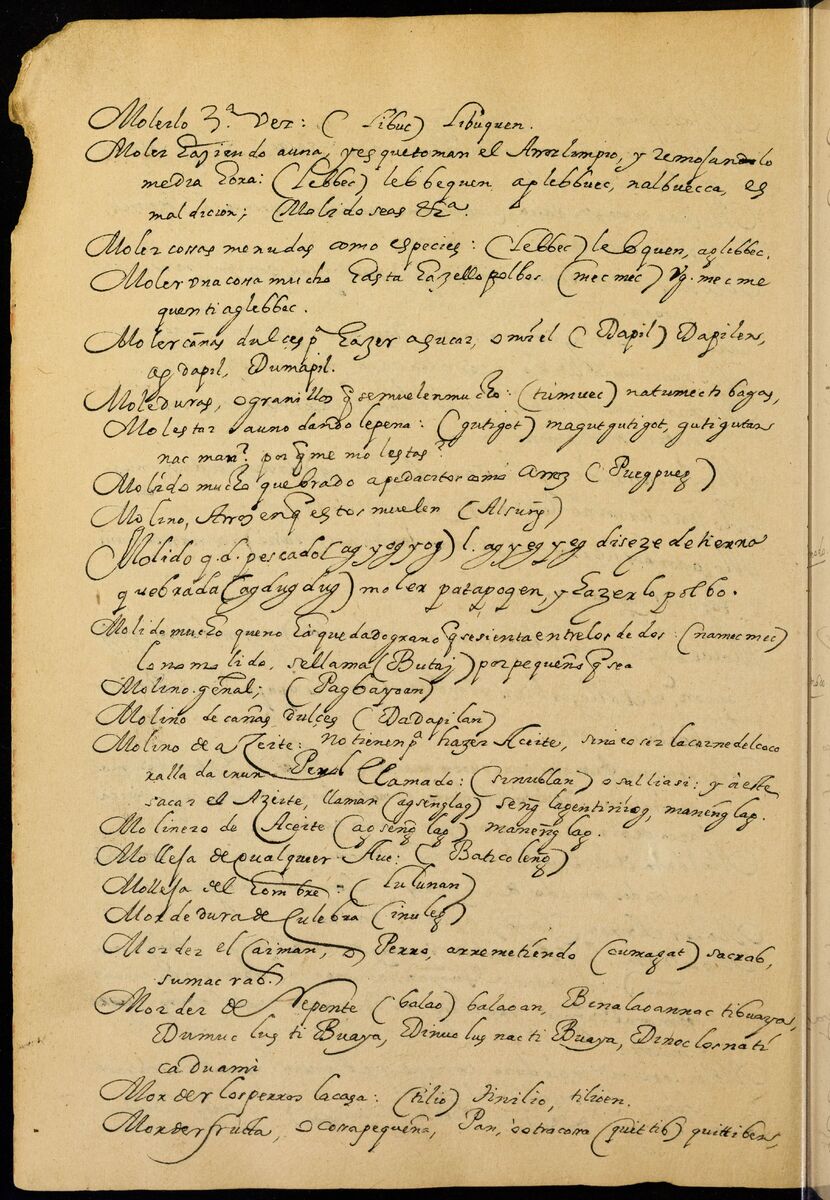 Molerlo 3.ª vez: ( Libuc) Libuquen.
Moler haziendo auna, y es que toman el Arroz limpio, y remosandolo
media hora: (Lebbec) lebbequen, aplebbuec, nalbuecca, es
maldicion; Molido seas &ra.
Moler cossas menudas como especies: (Lebbec) lebquen, aglebbec.
Moler vna cossa mucho hasta hazello polbos (mec mec) vg. mec me
quenti aglebbec.
Moler cañas dulces pª hazer asucar, o miel ( Dapil) Dapilens,
agdapil, Dumapil.
Moleduras, o granillos q̃ se muelen mucho: (tumuec) natumecti bagas,
Molestar a uno dandole pena: (gutigot) magutgutigot, gutigutans
nac man? por q̃ me molestas?
Molido mucho quebrado a pedacitos como Arroz ( Puegpueg )
Molino, Arroz en q̃ estos muelen (Alsung)
Molido q. d. pescado (ag yog yog) l. ag yeg yeg diseze de tierra
quebrada (agdug dug) moler patapogen, y hazerlo polbo.
Molido mucho que no ha quedado grano q̃ se sienta entre los dedos: (namec mec)
lo no molido, se llama (Butaj) por pequeño q̃ sea
Molino general; (Pagbayoan)
Molino de cañas dulces (Dadapilan)
Molino de aZeite: No tienen pª hazer Aceite, sino coser la carne del coco
rallada en un Perol llamado: (sinublan) o salliasi: y a este
sacar el Azeite, llaman (agsenglag) seng lagentiniog, manenglag.
Molinero de Aceite (agsenglag) manenglag.
Molleja de qualquier Ave: ( Baticoleng)
Molleja del hombre: ( tulunan)
Mordedura de Culebra (inuleg)
Morder el Caiman, o Perro, arremetiendo (cumagat) sacrab,
sumacrab.
Morder de Repente (balao) balaoan, Binalaoannac tibuaya,
Dumuc lus ti Buaya, Dinuc lus nac ti Buaya, Dinoclosnati
caduami
Morder los perros la casa: (tilio) tinilio, tilioen.
Morder frutta, o cosa pequeña, Pan, o otra cosa (quittib) quittibens,